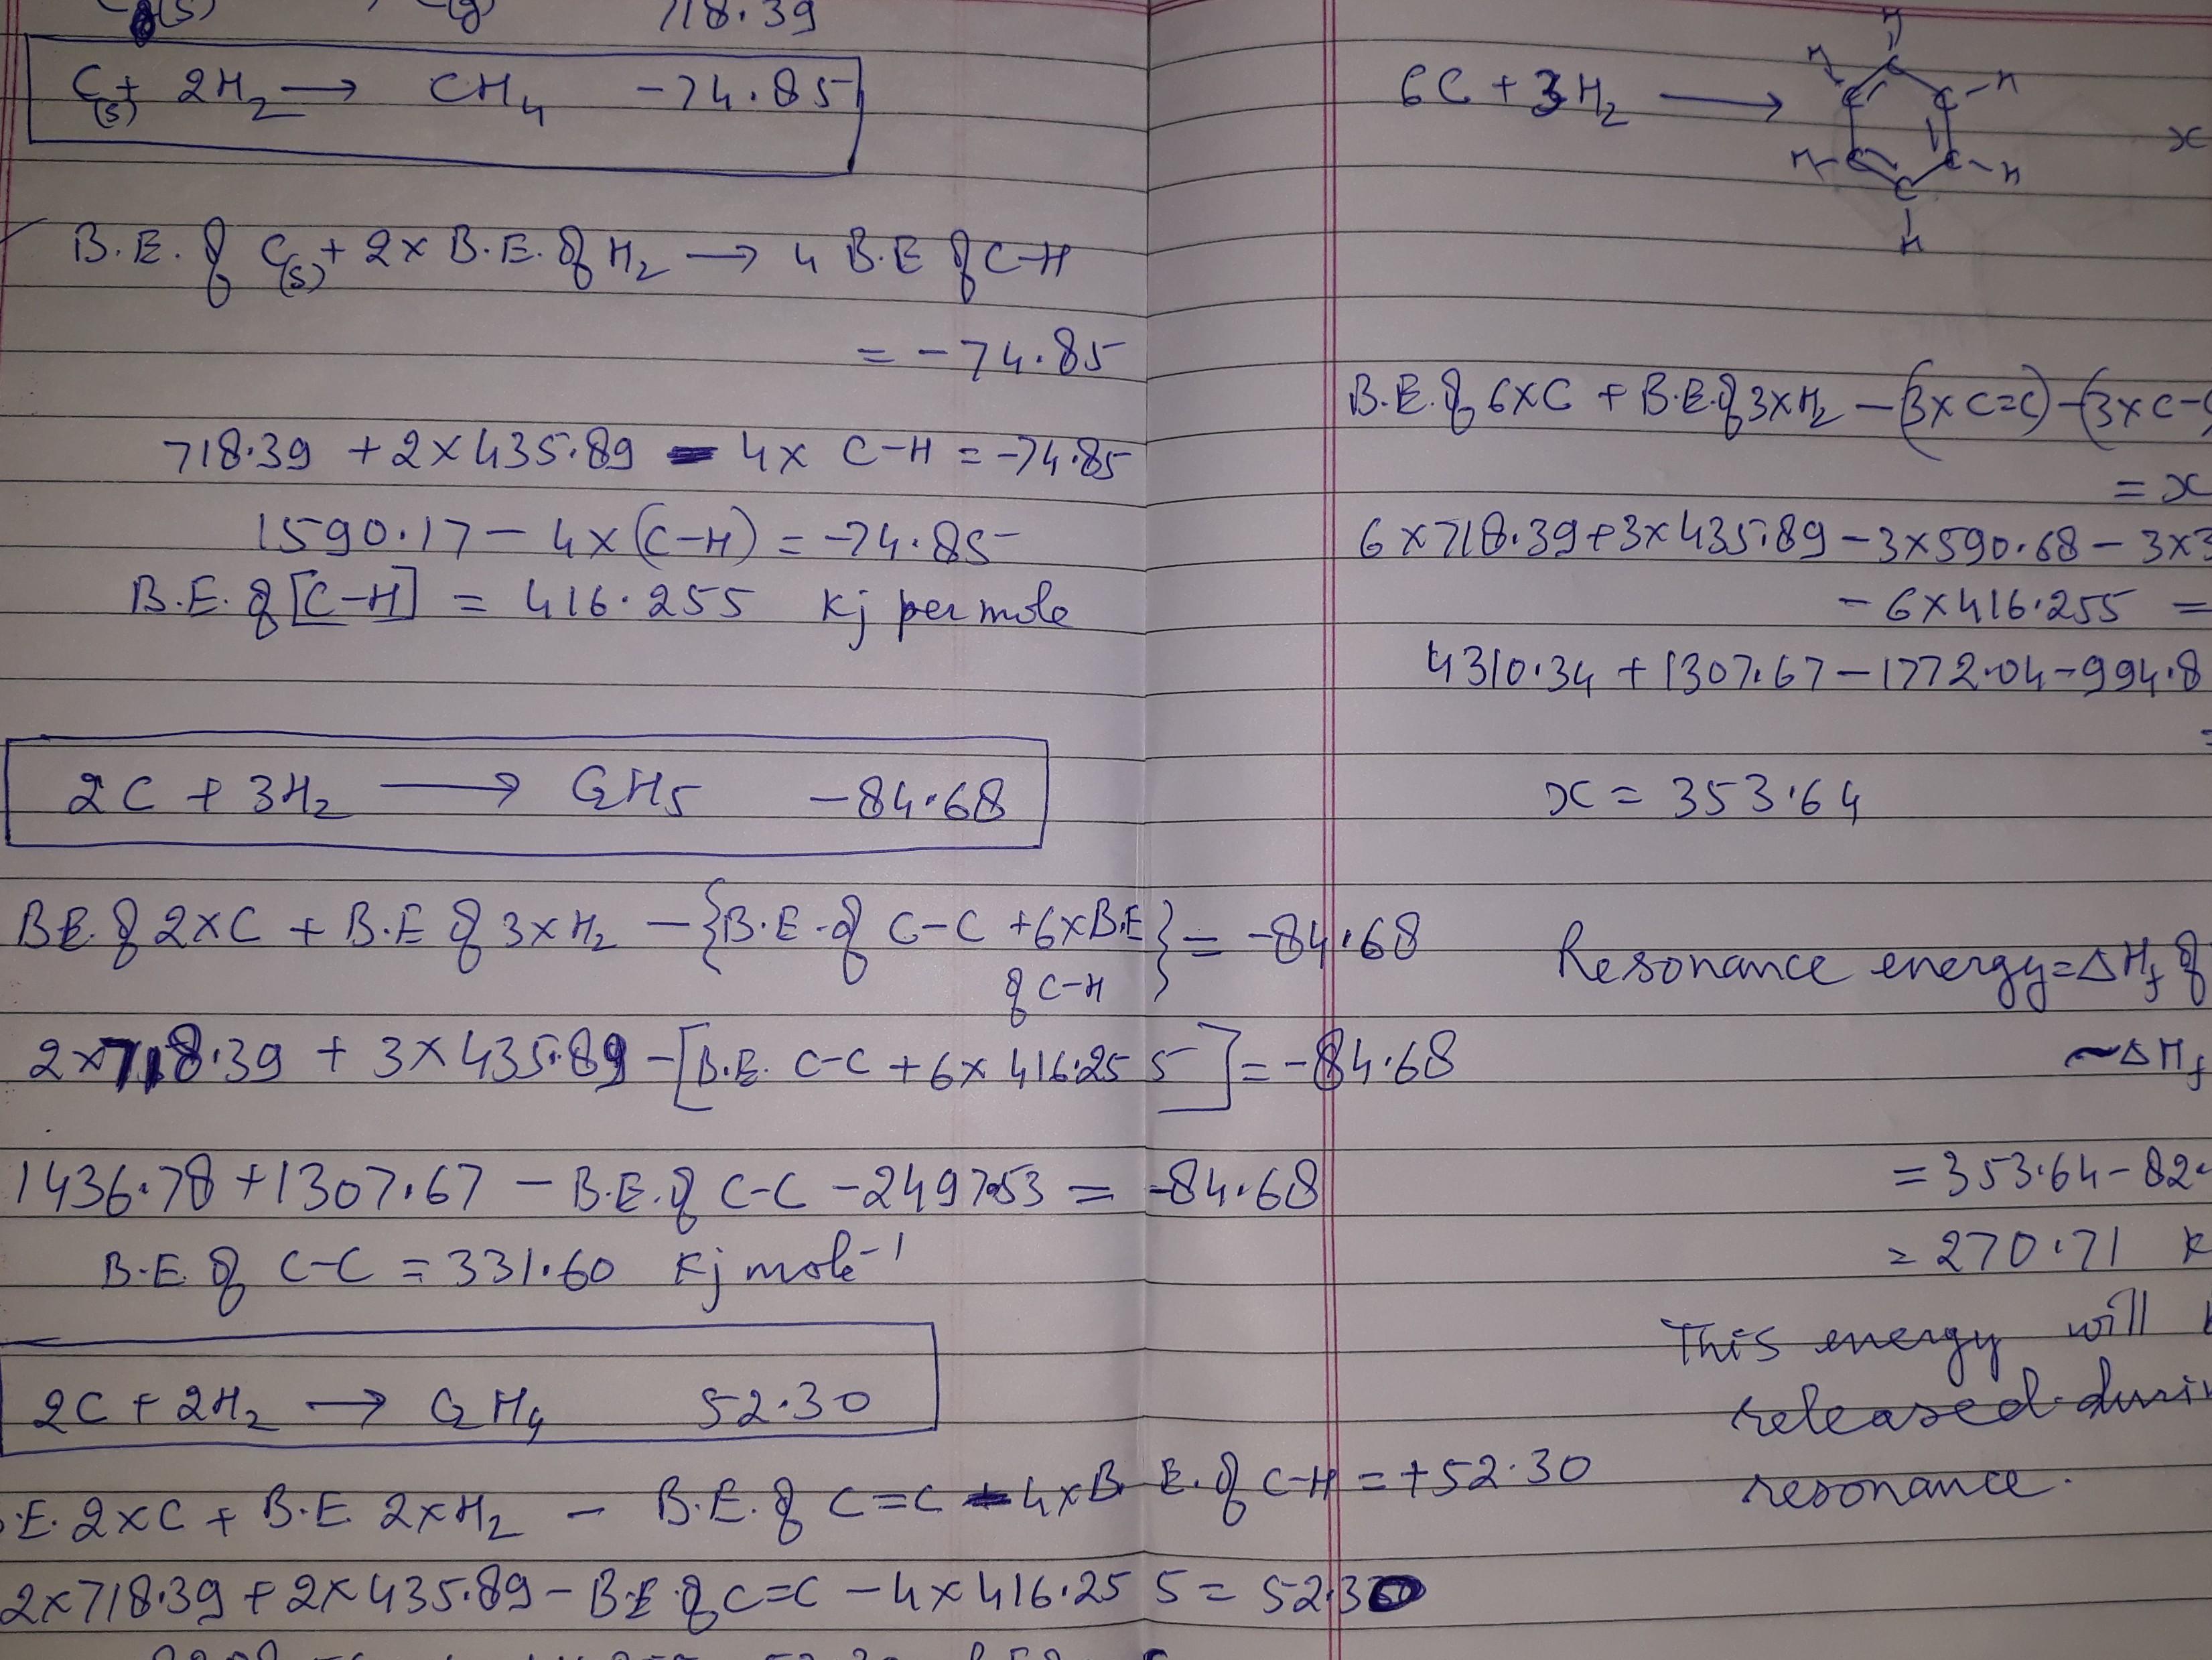 718.39
C(s) + 2H2 → CH4 -74.85
B.E. of C(s) + 2x B.E. of H2 → 4 B.E of C-H
= -74.85
718.39 + 2x435.89 - 4x C-H = -74.85
1590.17 - 4x(C-H) = -74.85
B.E. of [C-H] = 416.255 Kj per mole
2C + 3H2 → C2H5 -84.68
B.E. of 2xC + B.E of 3xH2 - {B.E. of C-C + 6xB.E of C-H} = -84.68
2x718.39 + 3x435.89 - [B.E. C-C + 6x 416.255] = -84.68
1436.78 + 1307.67 - B.E. of C-C - 2497.53 = -84.68
B.E. of C-C = 331.60 Kj mole-1
2C + 2H2 → C2H4 52.30
.E. 2xC + B.E. 2xH2 - B.E. of C=C - 4xB.E. of C-H = +52.30
2x718.39 + 2x435.89 - B.E of C=C - 4x416.255 = 52.30
6C + 3H2 →
H
H C C H
C C
H-C C-H
C
H
x
B.E. of 6xC + B.E. of 3xH2 - (3x C=C) - (3x C-C
= x
6x718.39 + 3x435.89 - 3x590.68 - 3x3
- 6x416.255 =
4310.34 + 1307.67 - 1772.04 - 994.8
x = 353.64
Resonance energy = ΔHf of
~ΔHf
= 353.64 - 82.
= 270.71 K
This energy will
released duri
resonance.